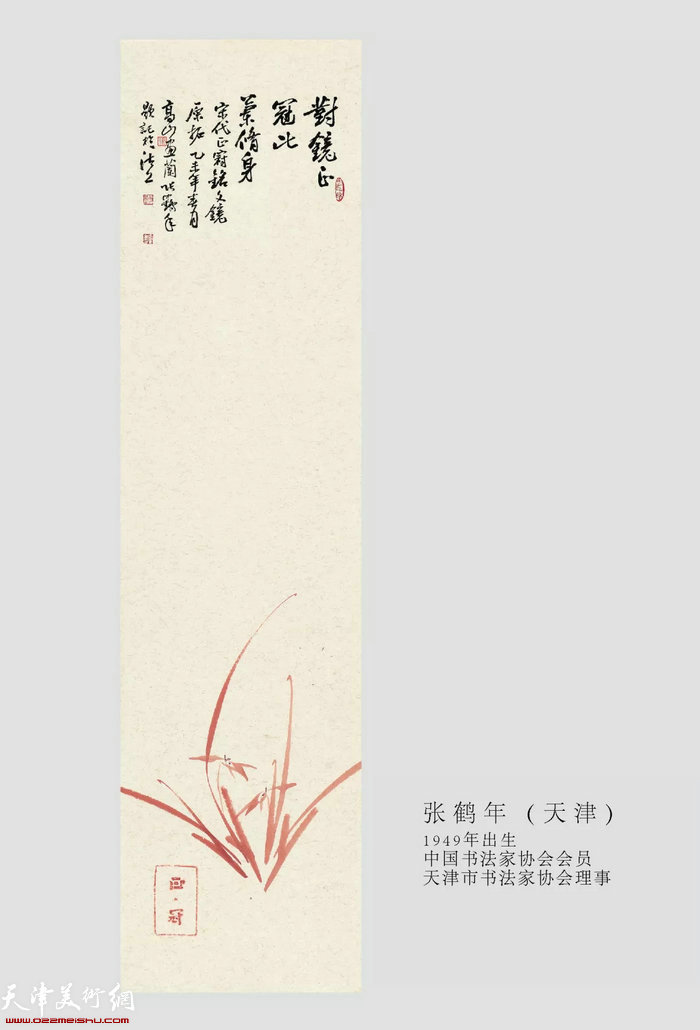 對鏡正
冠此
蘭脩身
宋代正冠銘文鏡
原拓乙未年春月
高山畫蘭張鶴年
題記於津上
正·冠
张鹤年（天津）
1949年出生
中国书法家协会会员
天津市书法家协会理事
天津美術網
www.022meishu.com